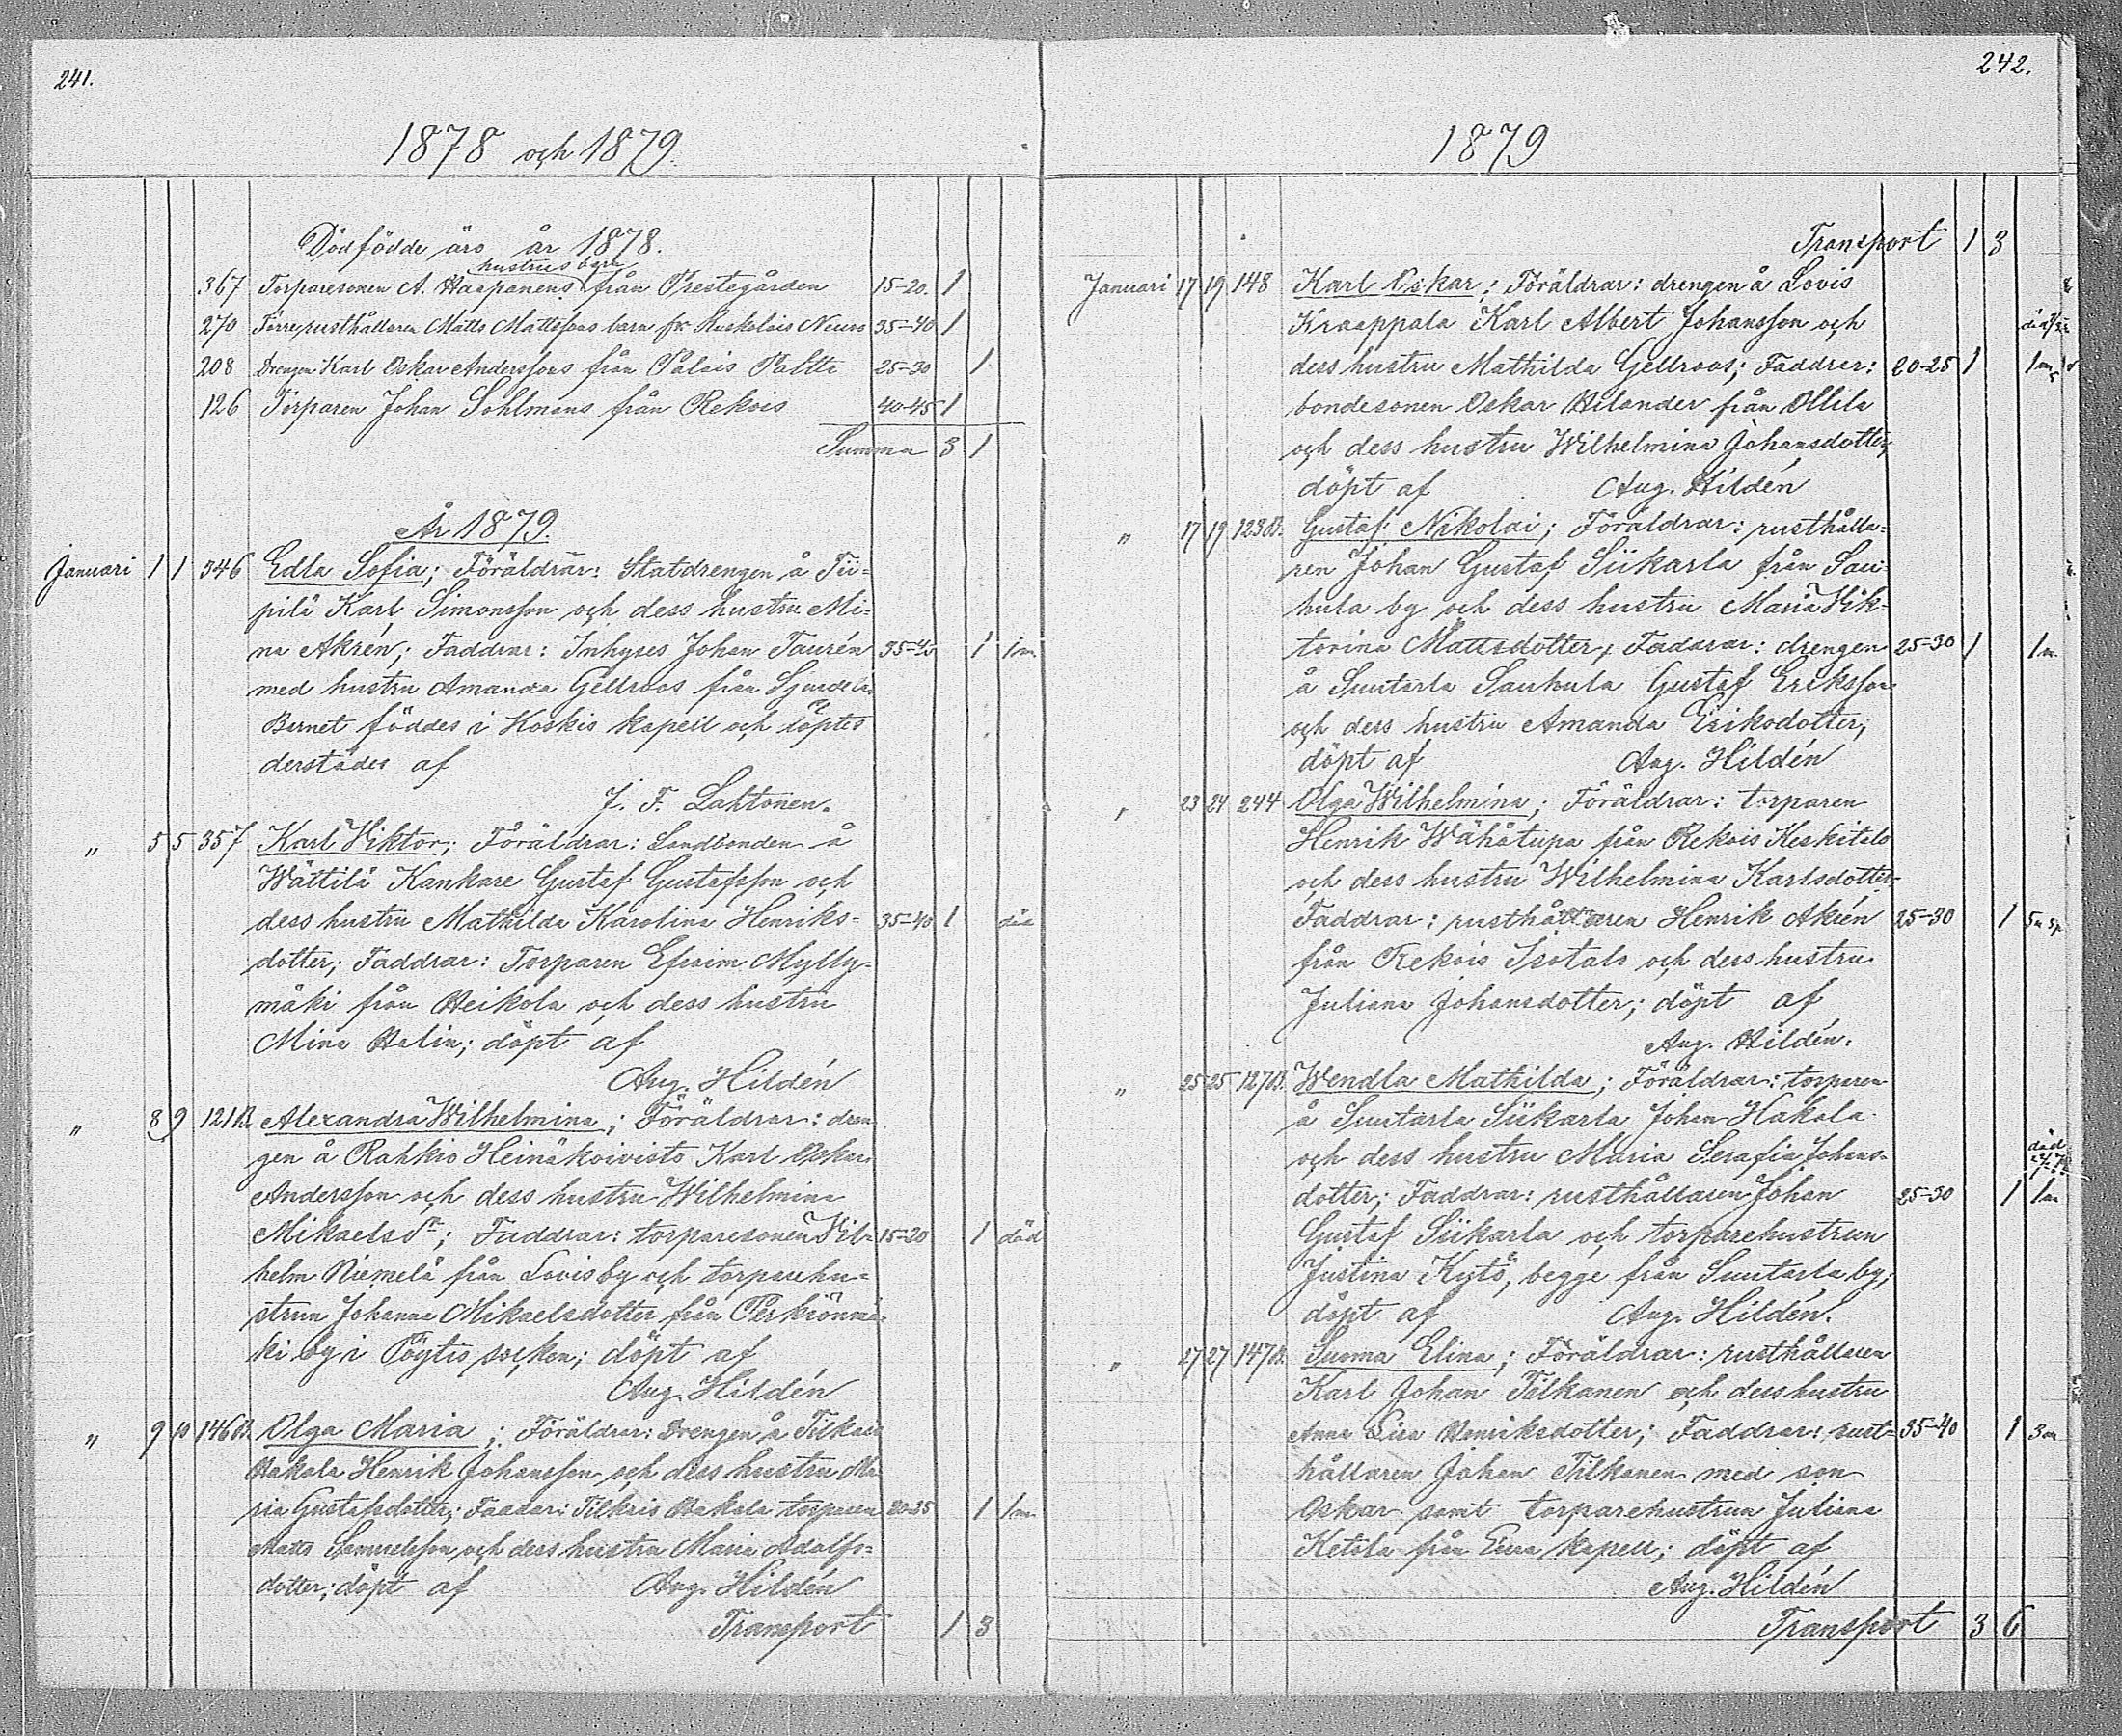 241.
1878 och 1879.
Dödfödde äro år 1878.
hustrus barn
367 Torparesonen A. Haapanens från Prestegården 15-20. 1
270 Förre rusthållaren Matts Mattssons barn fr. Ruskolais 35-40 1
208 Drengen Karl Oskar Anderssons från Palais Paltta 25-30 1
126 Torparen Johan Sohlmans från Rekois 40-45 1
Summa 3 1
År 1879.
Januari 1 1 346 Edla Sofia; Föräldrar: Statdrengen å Tii-
pilä Karl Simonsson och dess hustru Mi-
na Akrén; Faddrar: Inhyses Johan Taurén 35-40 1 1 m.
med hustru Amanda Gellroos från
Barnet föddes i Koskis kapell och döptes
derstädes af
J. F. Lahtonen.
" 5 5 357 Karl Viktor; Föräldrar: Landbonden å
Wättilä Kankare Gustaf Gustafsson och
dess hustru Mathilda Karolina Henriks- 35-40 1 död
dotter; Faddrar: Torparen Efraim Mylly-
mäki från Heikola och dess hustru
Mina Halin; döpt af
Aug. Hildén
" 8 9 121 B. Alexandra Wilhelmina; Föräldrar: dren-
gen å Rahkio Heinäkoivisto Karl Oskar
Andersson och dess hustru Wilhelmina
Mikaelsdr; Faddrar: torparesonen Wil- 15-20 1 död
helm Niemelä från Lovis by och torparehu-
strun Johanna Mikaelsdotter från
ki by i Pöytis socken; döpt af
Aug. Hildén
" 9 10 146 B. Olga Maria; Föräldrar: Drengen å Tilkais
Hakala Henrik Johansson och dess hustru Ma-
ria Gustafsdotter; Faddrar: Tilkais Hakala torparen 1 1 m.
Matts Samuelsson och dess hustru Maria Adolfs-
dotter; döpt af Aug. Hildén
Transport 1 3
242.
1879
Transport 1 3
Januari 17 19 148 Karl Oskar; Föräldrar: drengen å Lovis
Kraappala Karl Albert Johansson och
dess hustru Mathilda Gellroos; Faddrar: 20-25 1
bondesonen Oskar Hilander från Ollila
och dess hustru Wilhelmina Johansdotter,
döpt af Aug. Hildén
" 17 19 123 B. Gustaf Nikolai; Föräldrar: rusthålla-
ren Johan Gustaf Siikarla från Sau-
hula by och dess hustru Maria Vik-
torina Mattsdotter; Faddrar: drengen 25-30 1 1 m.
å Suutarla Sauhula Gustaf Eriksson
och dess hustru Amanda Eriksdotter;
döpt af Aug. Hildén
" 23 24 244 Olga Wilhelmina; Föräldrar: torparen
Henrik Wähätupa från Rekois Keskitalo
och dess hustru Wilhelmina Karlsdotter
Faddrar: rusthållaren Henrik Akrén 25-30 1
från Rekois Isotalo och dess hustru
Juliana Johansdotter; döpt af
Aug. Hildén.
" 25 25 127 B. Wendla Mathilda; Föräldrar: torparen
å Suutarla Siikarla Johan Hakala
och dess hustru Maria Serafia Johans- död
dotter; Faddrar: rusthållaren Johan 25-30 1 1 m
Gustaf Siikarla och torparehustrun
Justina Kytö, begge från Suutarla by;
döpt af Aug. Hildén.
" 27 27 147 B. Suoma Elina; Föräldrar: rusthållaren
Karl Johan Tilkanen och dess hustru
Anna Lisa Henriksdotter; Faddrar: rust- 35-40 1 3 m
hållaren Johan Tilkanen med son
Oskar samt torparehustrun Juliana
Ketola från Eura kapell; döpt af
Aug. Hildén
Transport 3 6